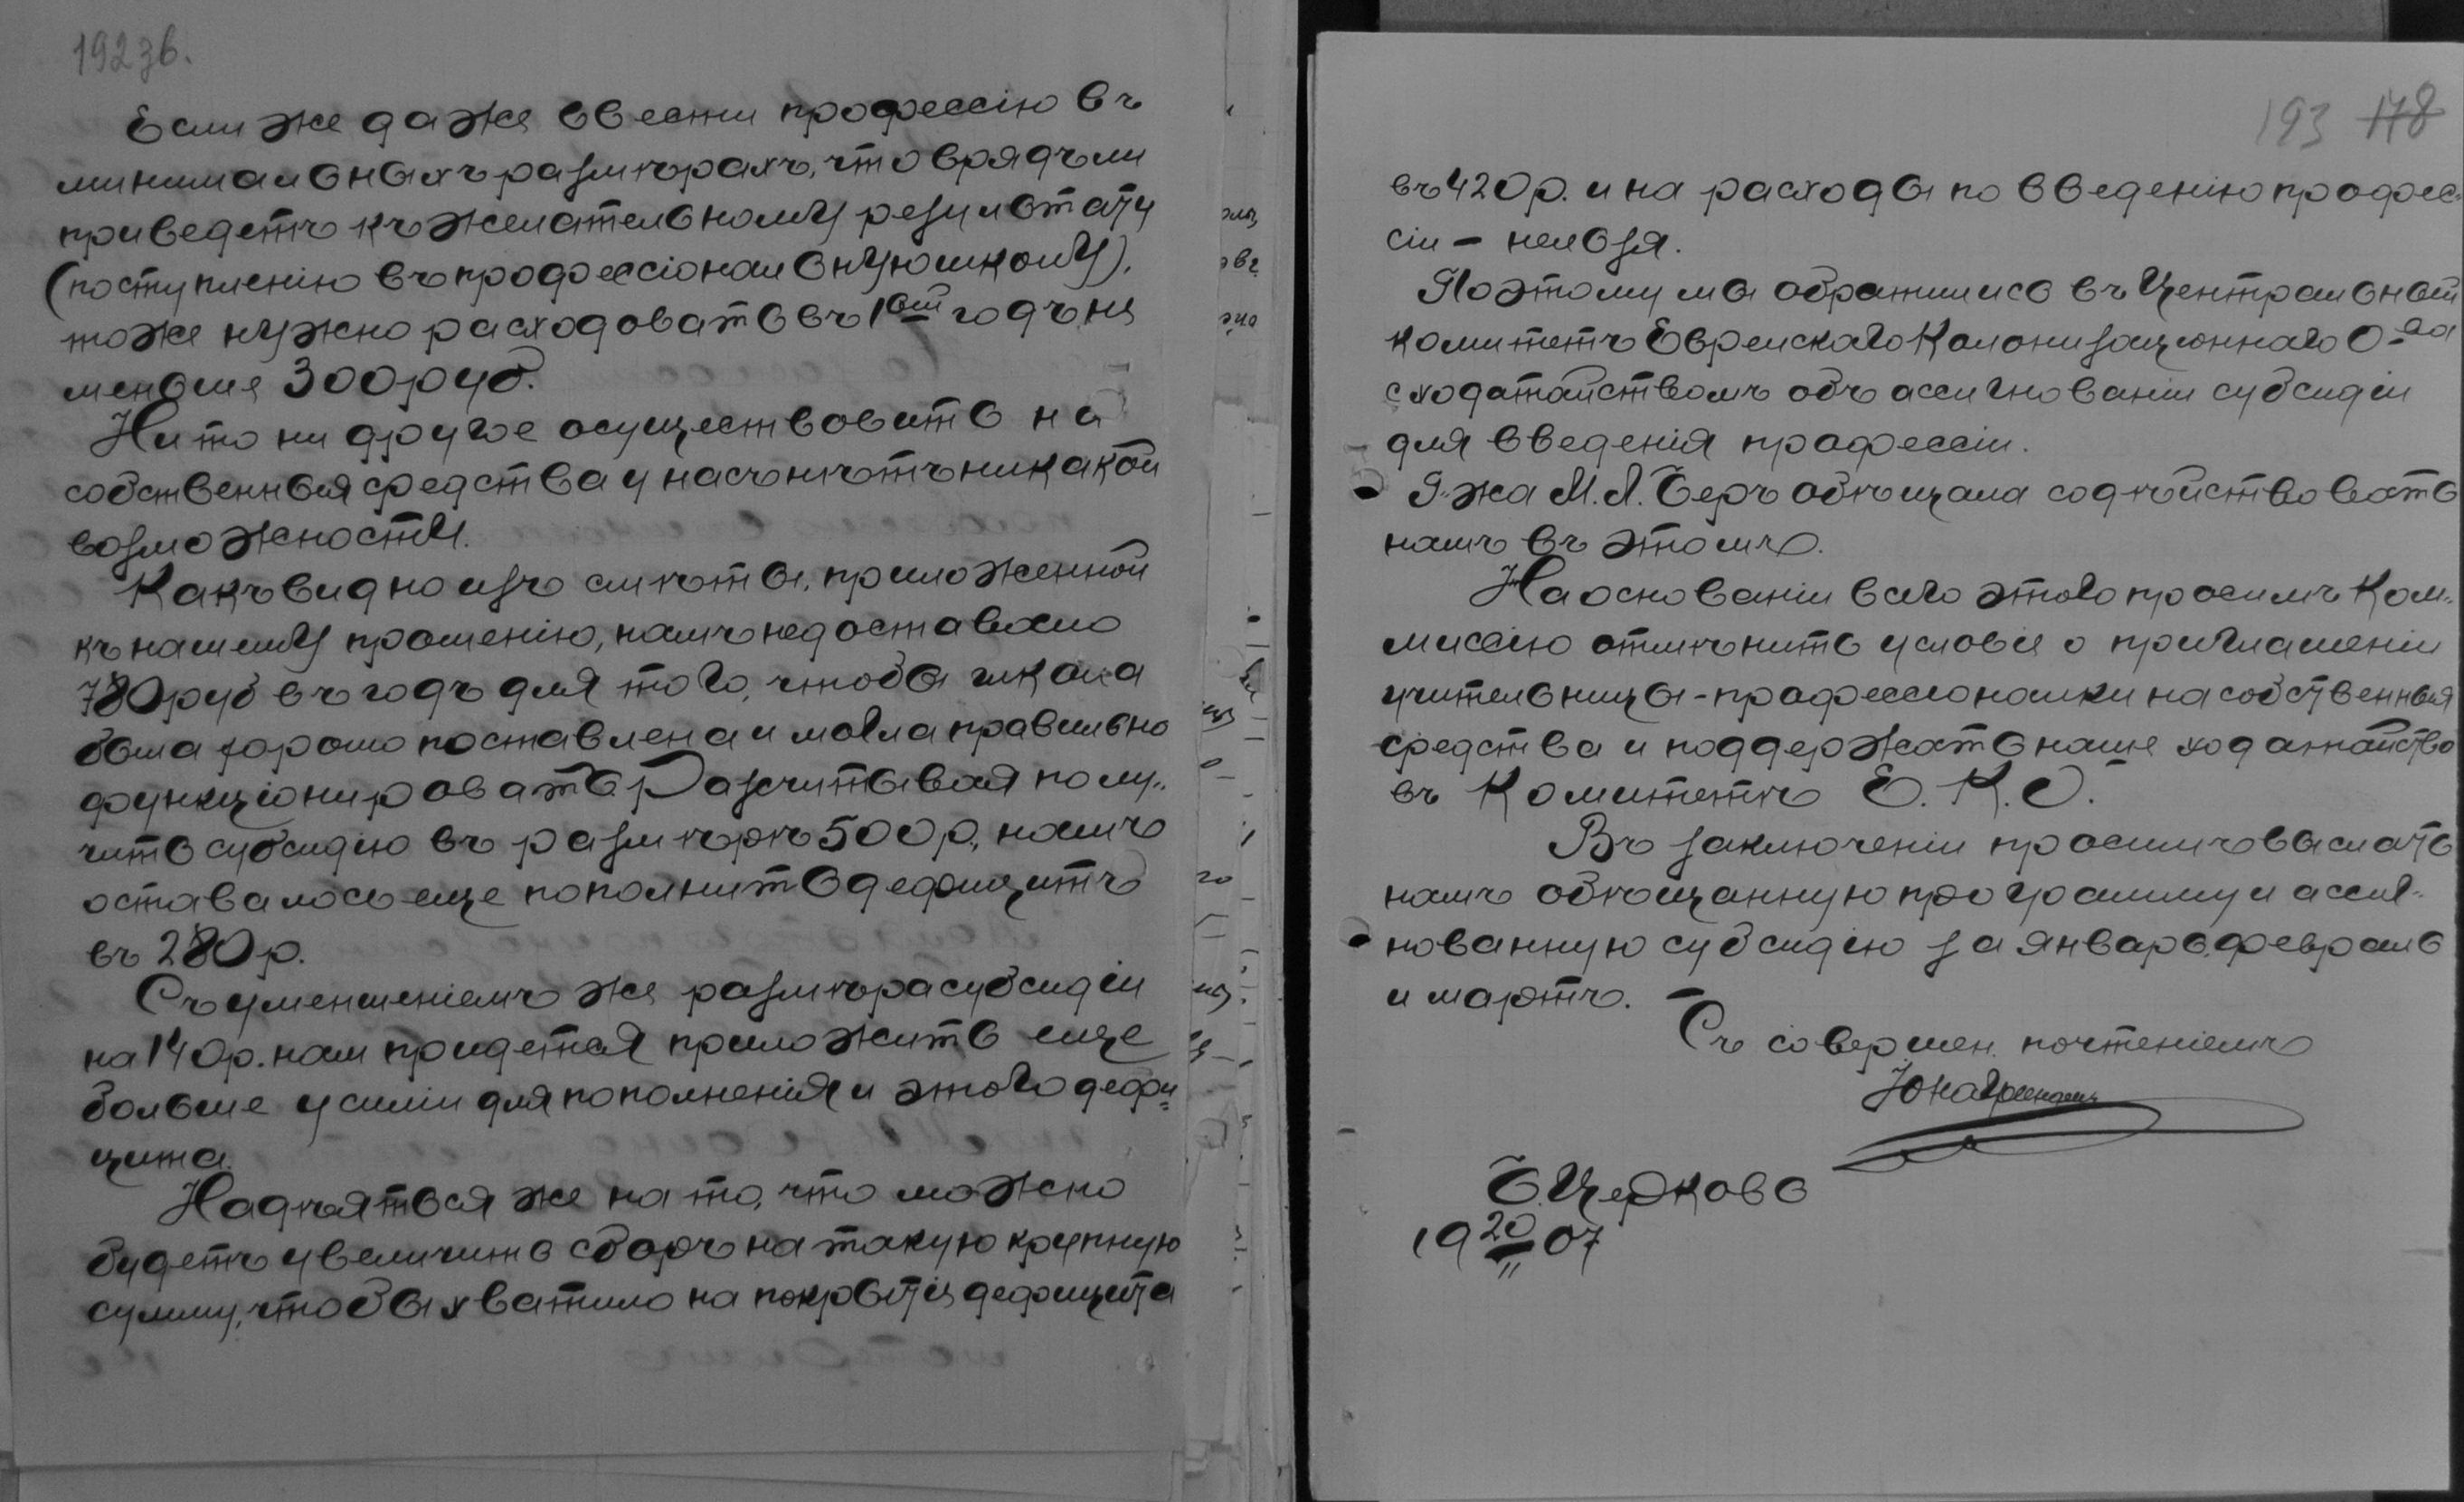 192 зв.
Если же даже ввести профессію въ
минимальныхъ размѣрахъ, что врядъ ли
приведетъ къ желательному результату
(поступленію въ профессіональную школу),
тоже нужно расходовать въ 1ый годъ не
меньше 300 руб.
Ни то ни другое осуществовать на
собственныя средства у насъ нѣтъ никакой
возможности.
Какъ видно изъ смѣты, приложенной
къ нашему прошенію, намъ недоставало
780 руб въ годъ для того, чтобы школа
была хорошо поставлена и могла правильно
функціонировать. Разсчитывая полу-
чить субсидію въ размѣрѣ 500 р., намъ
оставалось еще пополнить дефицитъ
въ 280 р.
Съ уменшеніемъ же размѣра субсидіи
на 140 р. нам придется приложить еще
больше усиліи для пополненія и этого дефи=
цита.
Надѣяться же на то, что можно
будетъ увеличить сборъ на такую крупную
сумму, чтобы хватило на покрытіе дефицита
193 178
въ 420 р. и на расходы по введенію профес-
сіи – нельзя.
Поэтому мы обратились въ Центральный
Комитетъ Еврейскаго Колонизаціоннаго О-ва
с ходатайствомъ объ ассигнованіи субсидіи
для введенія профессіи.
Г-жа М. Л. Беръ обѣщала содѣйствовать
намъ въ этомъ.
На основаніи всего этого просимъ Ком-
миссію отмѣнить условіе о приглашеніи
учительницы-профессіоналки на собственныя
средства и поддержать наше ходатайство
въ Комитетѣ Е. К. О.
Въ заключеніи просимъ выслать
намъ обѣщанную программу и ассиг-
нованную субсидію за январь, февраль
и мартъ.
Съ совершен. почтеніемъ
Б. Церковь
19 20/II 07